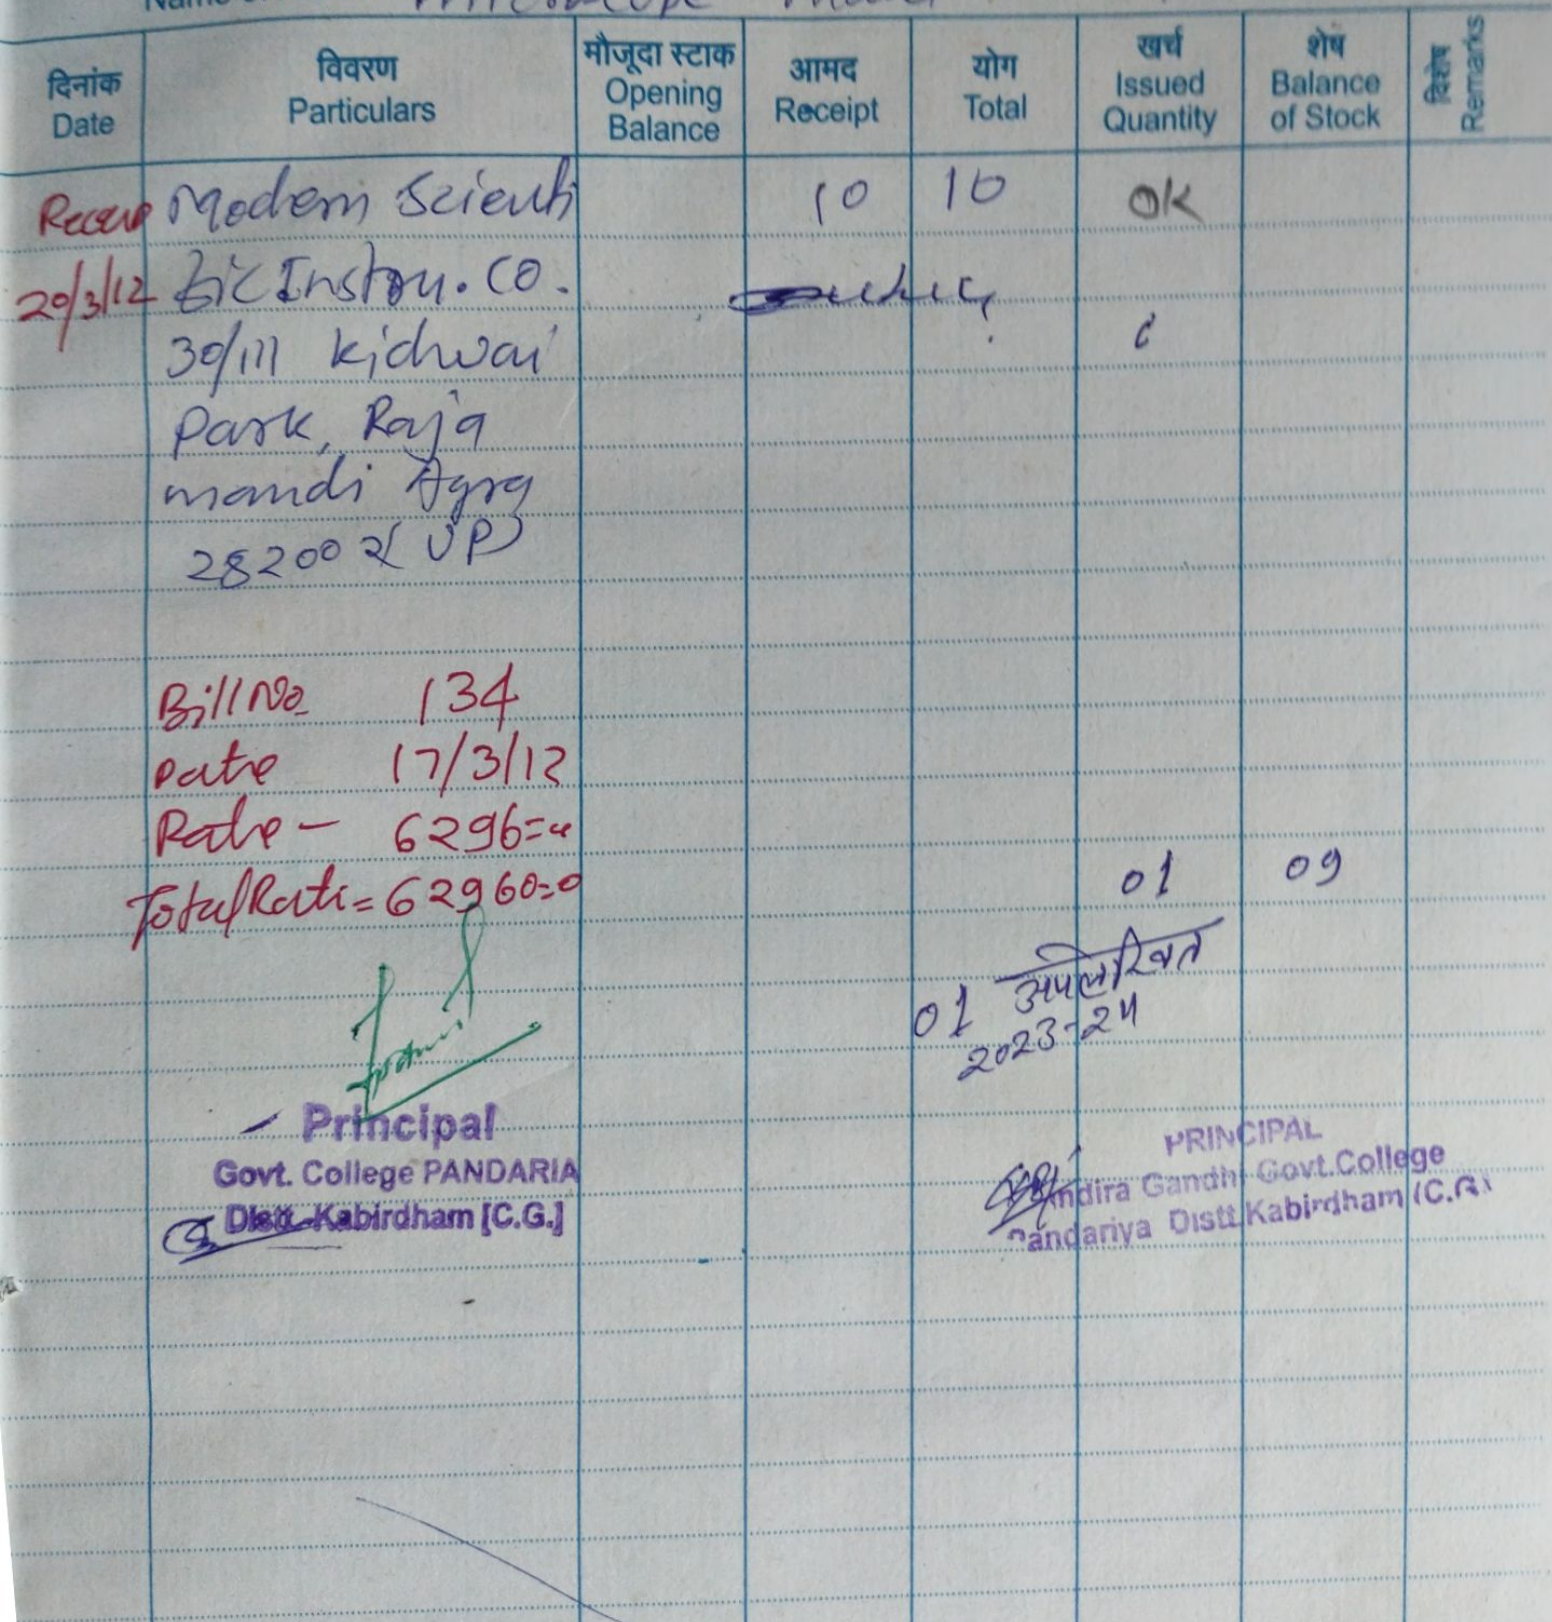 दिनांक
Date
विवरण
Particulars
मौजूदा स्टाक
Opening
Balance
आमद
Receipt
योग
Total
खर्च
Issued
Quantity
शेष
Balance
of Stock
विशेष
Remarks
Modern Scienti 10 10 OK
20/3/12 fic Instru. CO.
30/111 Kidwai
Park, Raja
mandi Agra
282002 (UP)
Bill No 134
Date 17/3/12
Rate - 6296=
Total Rati = 62960=0
01 09
01 अपलेखित
2023-24
Principal
Govt. College PANDARIA
Distt. Kabirdham [C.G.]
PRINCIPAL
Indira Gandhi Govt.College
Pandariya Distt.Kabirdham (C.G.)